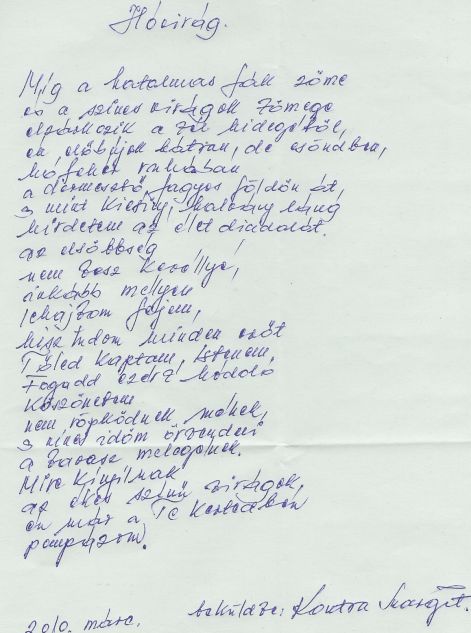 Hóvirág.
Míg a hatalmas fák zöme
és a színes virágok tömege
elzárkózik a tél hidegétől,
én előbújok bátran, de csöndben,
hófehér ruhában
a dermesztő, fagyos földön át,
s mint kicsinyj halvány láng
hirdetem az élet diadalát.
az elsőbbség
nem tesz kevéllyé,
inkább mélyen
lehajtom fejem,
hisz tudom minden erőt
Tőled kaptam, Istenem,
Fogadd ezért hódoló
köszönetem
nem röpködnek méhek,
s nincs időm örvendeni
a tavasz melegének.
Mire kinyílnak
az ékes színű virágok,
én már a Te kertedben
pompázom.
2010. márc.
beküldte: Kontra Margit.